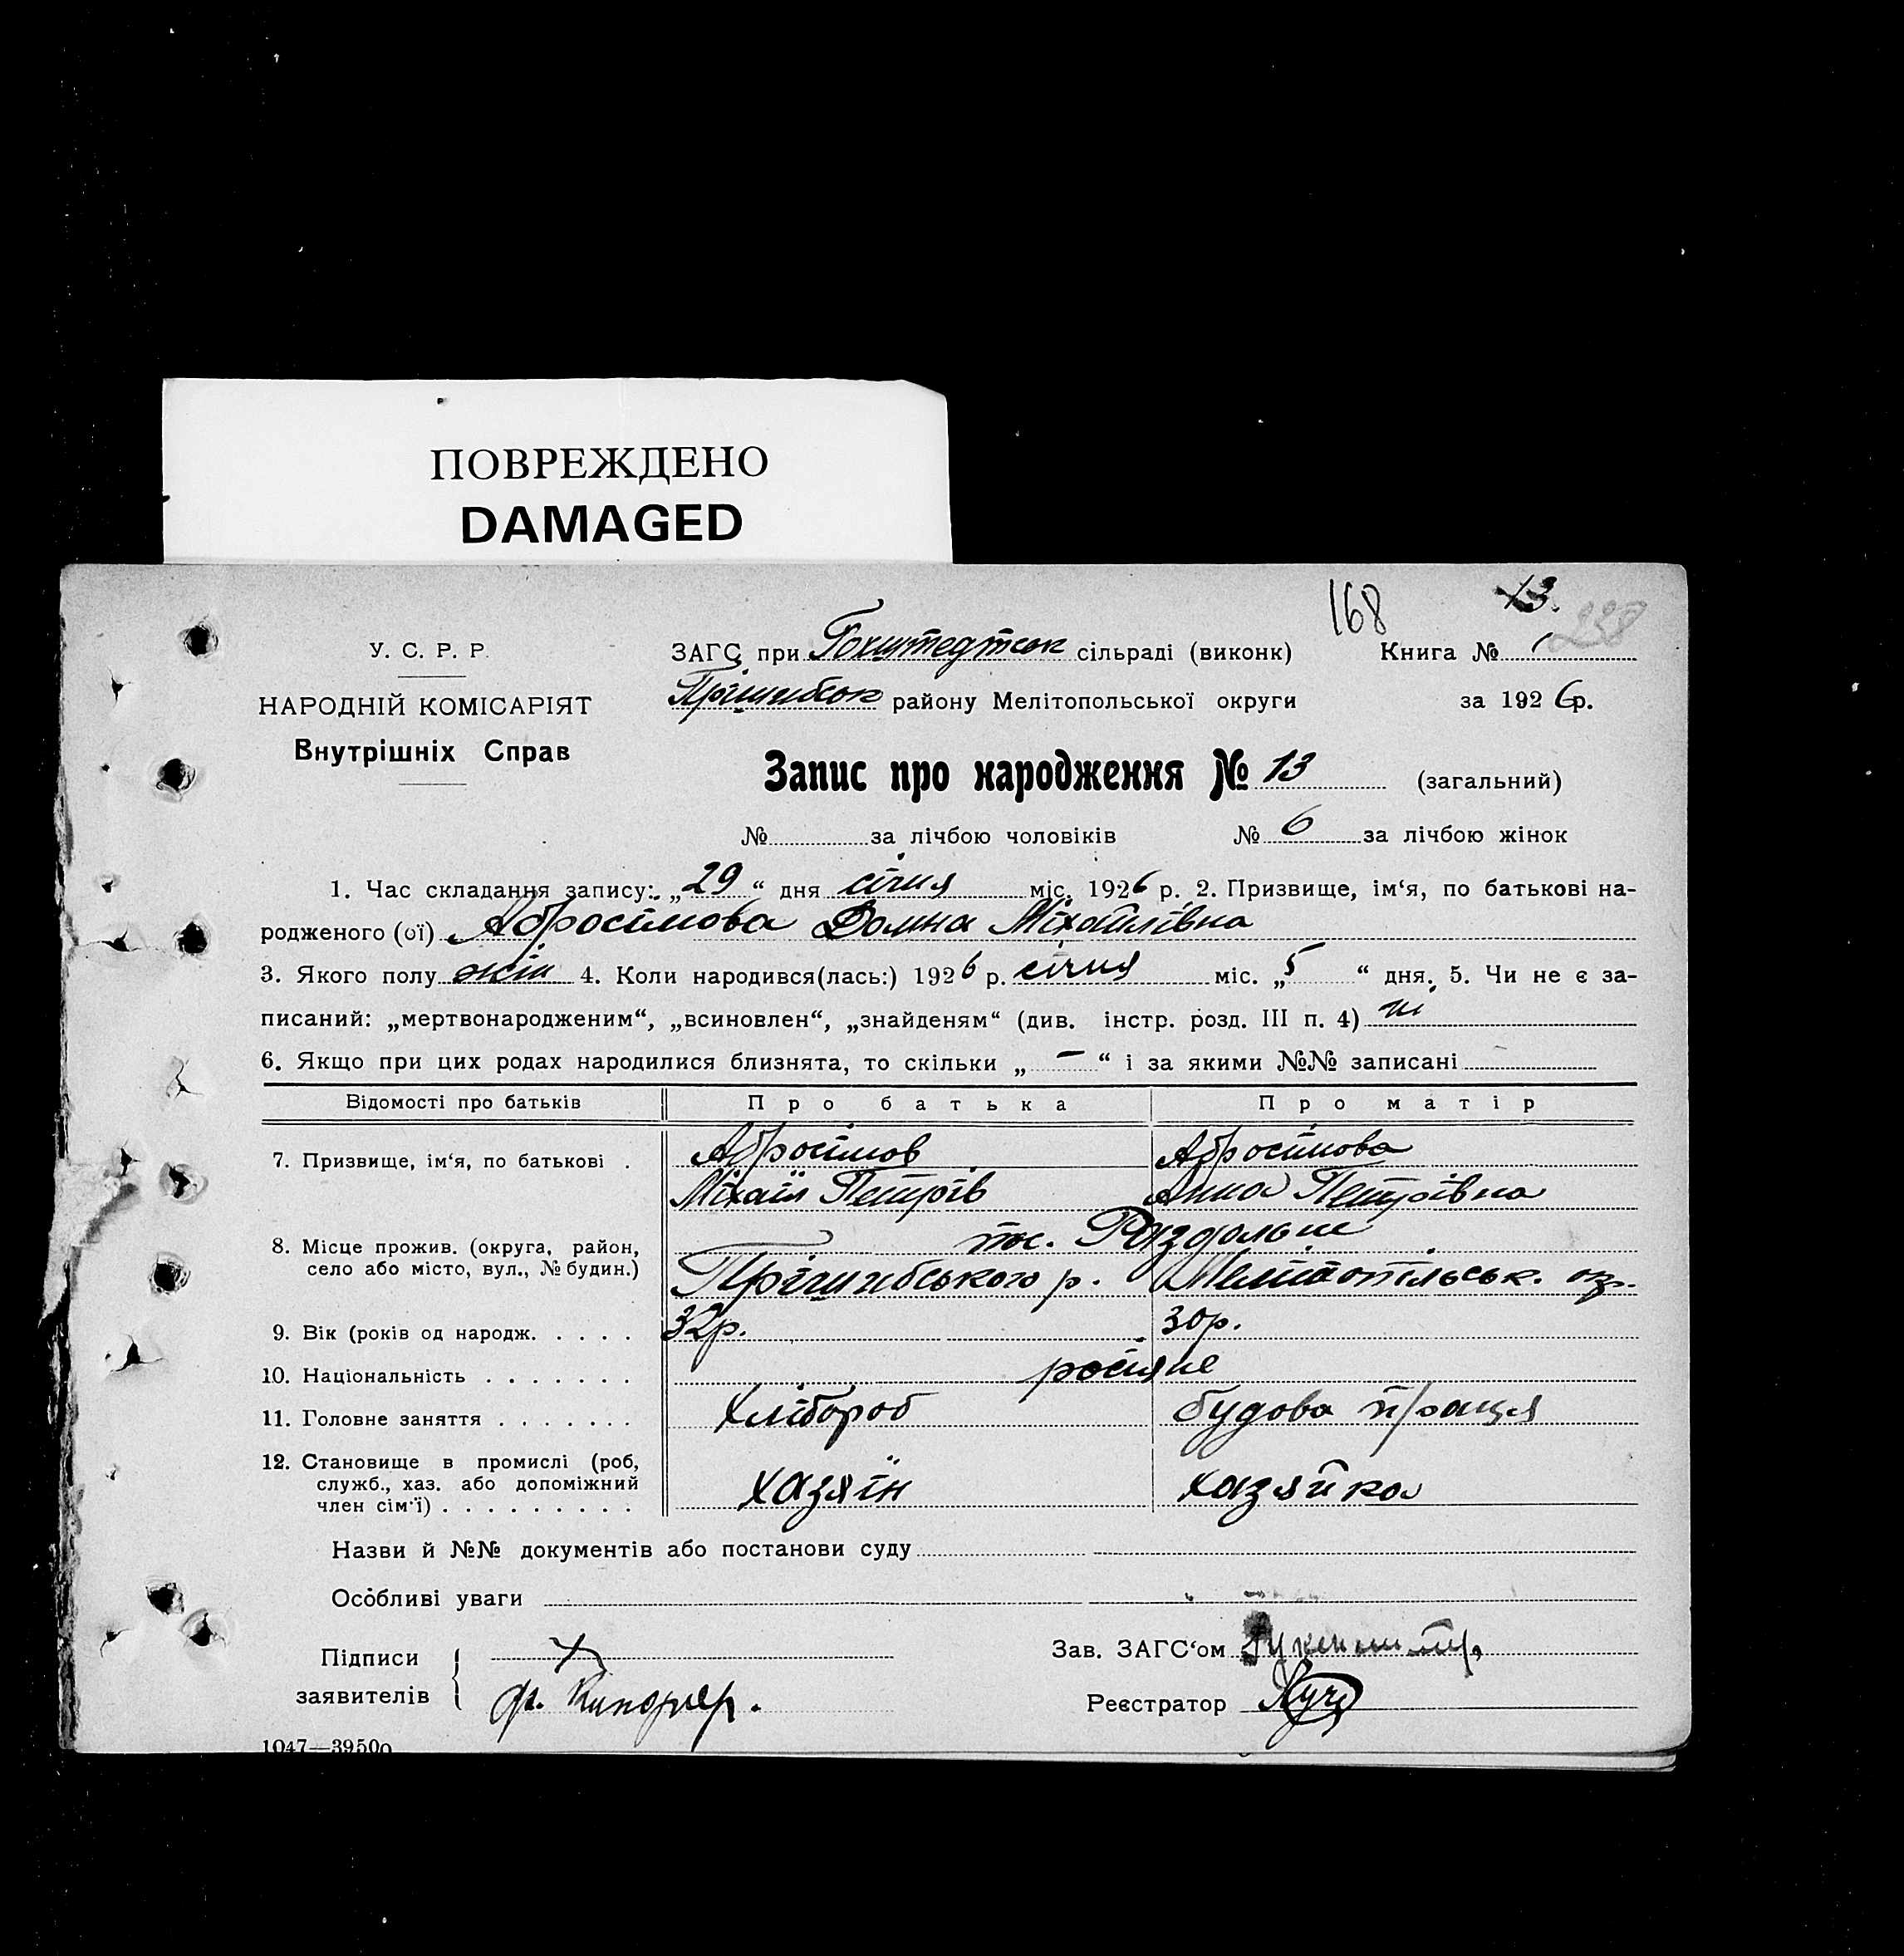 ПОВРЕЖДЕНО
DAMAGED
168
13.
238
У. С. Р. Р.
НАРОДНІЙ КОМІСАРІЯТ
Внутрішніх Справ
ЗАГС при Гохштедтськ сільраді (виконк) Книга № 1
Прішибськ району Мелітопольської округи за 1926 р.
Запис про народження № 13 (загальний)
№ за лічбою чоловіків № 6 за лічбою жінок
1. Час складання запису: „29“ дня січня міс. 1926 р. 2. Призвище, ім‘я, по батькові на-
родженого (ої) Абросімова Домна Міхайлівна
3. Якого полу жін 4. Коли народився(лась:) 1926 р. січня міс. „5“ дня. 5. Чи не є за-
писаний: „мертвонародженим“, „всиновлен“, „знайденям“ (див. інстр. розд. III п. 4) ні
6. Якщо при цих родах народилися близнята, то скільки „–“ і за якими №№ записані
Відомості про батьків Про батька Про матір
7. Призвище, ім‘я, по батькові . Абросімов Абросімова
Міхаіл Петрів Анна Петрівна
8. Місце прожив. (округа, район, село або місто, вул., № будин.) пос. Роздольне
Прішибського р. Мелітопільськ. окр.
9. Вік (років од народж. . . . . 32р. 30р.
10. Національність . . . . . . . росіяне
11. Головне заняття . . . . . . . хлібороб будова праця
12. Становище в промислі (роб,
служб., хаз. або допоміжний
член сім‘ї) . . . . . . . . . хазяїн хазяйка
Назви й №№ документів або постанови суду
Особливі уваги
Підписи
заявителів
Зав. ЗАГС‘ом
Реєстратор
1047—39500